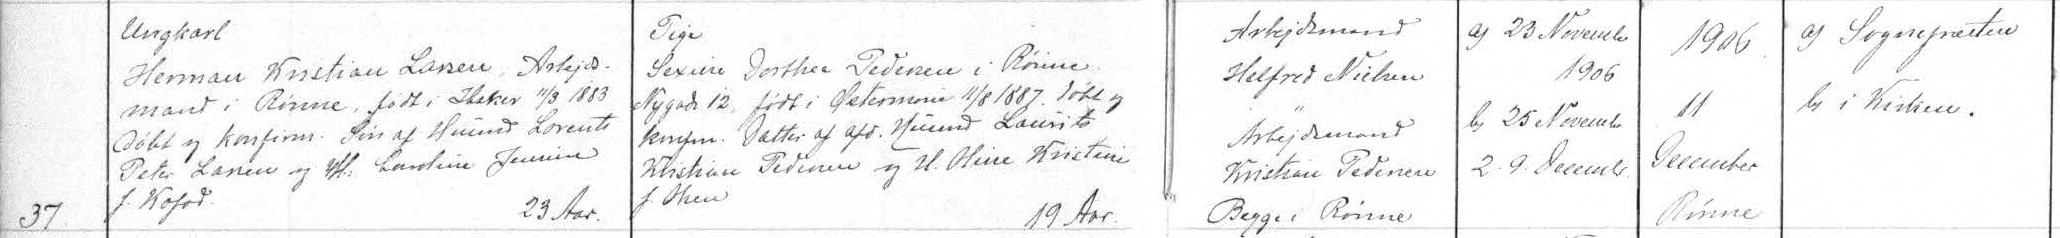 37.
Ungkarl
Herman Kristian Larsen, Arbejds-
mand i Rønne, født i Ibsker 11/3 1883
døbt og konfirm. Søn af Husmd Lorents
Peter Larsen og H. Caroline Jensine
f. Kofod.
23 Aar.
Pige
Sexine Dorthea Pedersen i Rønne
Nygade 12, født i Østermarie 11/8 1887. døbt og
konfm. Datter af afd. Husmd Laurits
Kristian Pedersen og H. Oline Kristine
f. Olsen
19 Aar.
Arbejdsmand
Helfred Nielsen
"
Arbejdsmand
Kristian Pedersen
Begge i Rønne
a) 23 Novembr
1906
b) 25 Novembr
2. 9. Decembr.
1906.
11
December
Rønne
a) Sognepræsten
b) i Kirken.